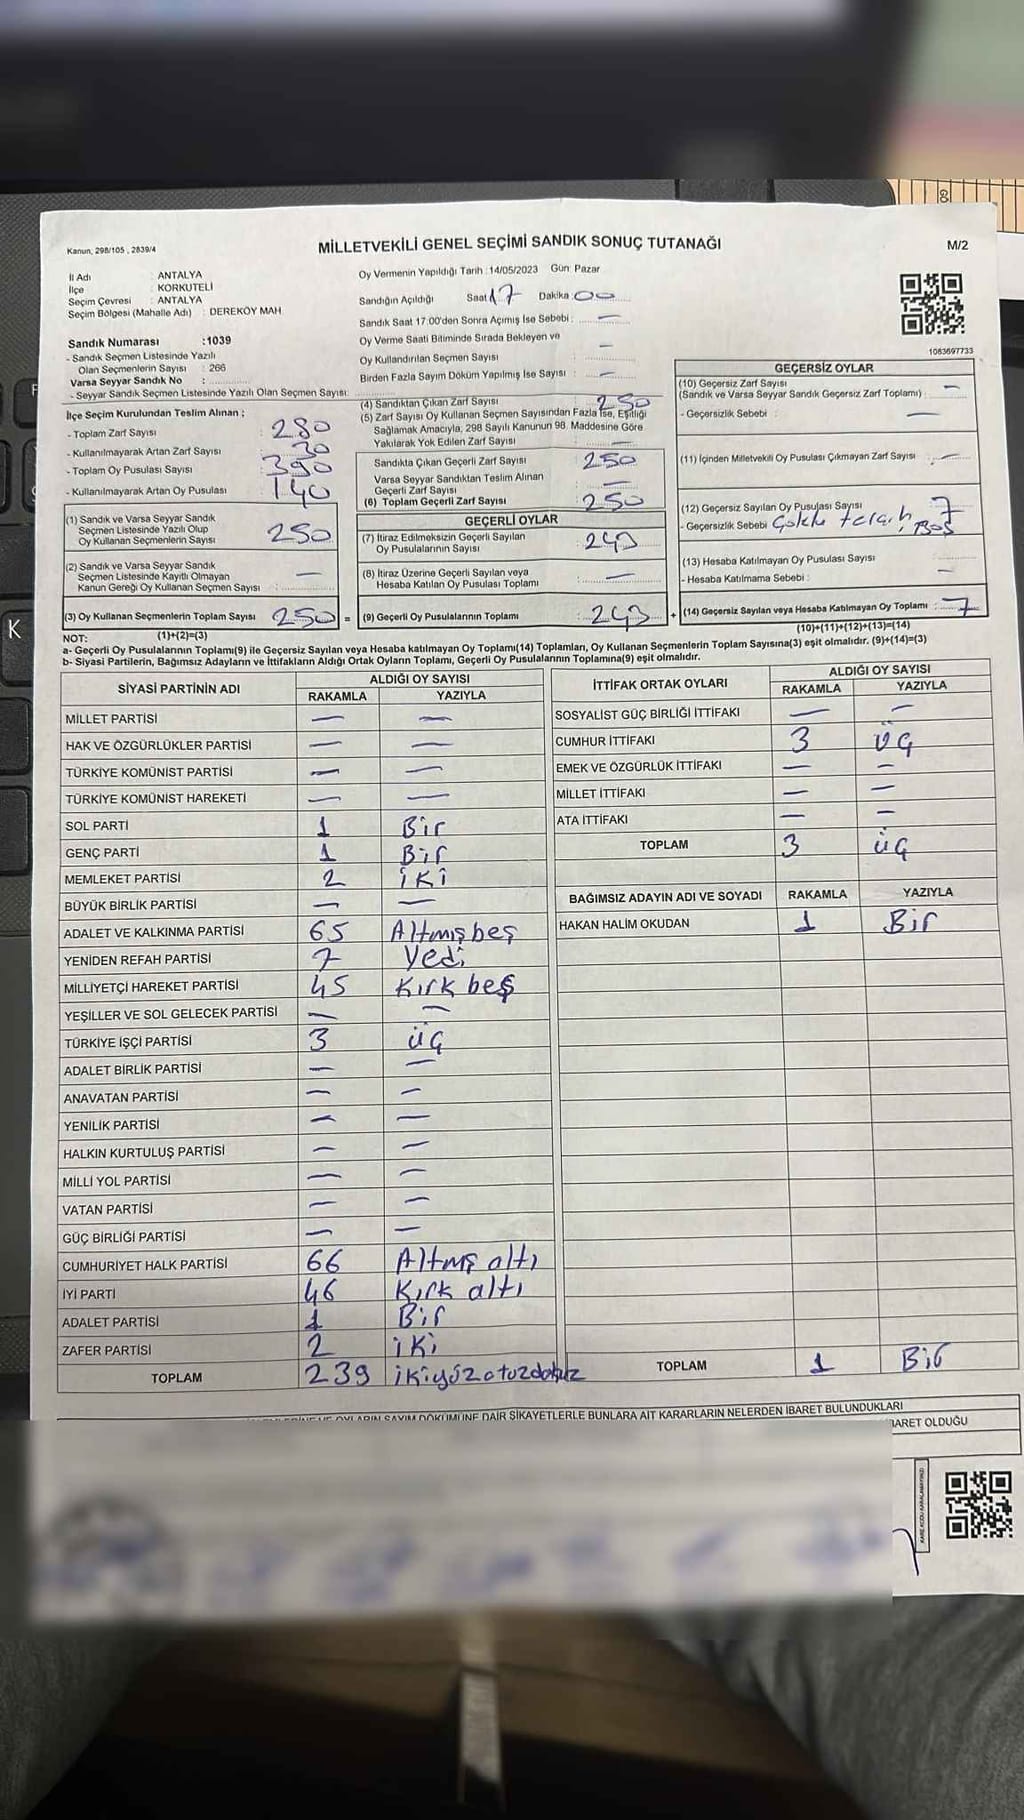 Kanun, 298/105 , 2839/4
MİLLETVEKİLİ GENEL SEÇİMİ SANDIK SONUÇ TUTANAĞI
M/2
İl Adı : ANTALYA
İlçe : KORKUTELİ
Seçim Çevresi : ANTALYA
Seçim Bölgesi (Mahalle Adı) : DEREKÖY MAH
Sandık Numarası :1039
- Sandık Seçmen Listesinde Yazılı
Olan Seçmenlerin Sayısı : 266
Varsa Seyyar Sandık No :
- Seyyar Sandık Seçmen Listesinde Yazılı Olan Seçmen Sayısı:
İlçe Seçim Kurulundan Teslim Alınan ;
- Toplam Zarf Sayısı : 280
- Kullanılmayarak Artan Zarf Sayısı : 30
- Toplam Oy Pusulası Sayısı : 390
- Kullanılmayarak Artan Oy Pusulası : 140
(1) Sandık ve Varsa Seyyar Sandık
Seçmen Listesinde Yazılı Olup
Oy Kullanan Seçmenlerin Sayısı : 250
(2) Sandık ve Varsa Seyyar Sandık
Seçmen Listesinde Kayıtlı Olmayan
Kanun Gereği Oy Kullanan Seçmen Sayısı : —
(3) Oy Kullanan Seçmenlerin Toplam Sayısı : 250 =
Oy Vermenin Yapıldığı Tarih :14/05/2023 Gün: Pazar
Sandığın Açıldığı Saat 17 Dakika :00
Sandık Saat 17:00'den Sonra Açımış İse Sebebi : —
Oy Verme Saati Bitiminde Sırada Bekleyen ve —
Oy Kullandırılan Seçmen Sayısı :
Birden Fazla Sayım Döküm Yapılmış İse Sayısı : —
(4) Sandıktan Çıkan Zarf Sayısı : 250
(5) Zarf Sayısı Oy Kullanan Seçmen Sayısından Fazla İse, Eşitliği
Sağlamak Amacıyla, 298 Sayılı Kanunun 98. Maddesine Göre
Yakılarak Yok Edilen Zarf Sayısı : —
Sandıkta Çıkan Geçerli Zarf Sayısı : 250
Varsa Seyyar Sandıktan Teslim Alınan
Geçerli Zarf Sayısı : —
(6) Toplam Geçerli Zarf Sayısı : 250
GEÇERLİ OYLAR
(7) İtiraz Edilmeksizin Geçerli Sayılan
Oy Pusulalarının Sayısı : 243
(8) İtiraz Üzerine Geçerli Sayılan veya
Hesaba Katılan Oy Pusulası Toplamı : —
(9) Geçerli Oy Pusulalarının Toplamı : 243 +
1083697733
GEÇERSİZ OYLAR
(10) Geçersiz Zarf Sayısı
(Sandık ve Varsa Seyyar Sandık Geçersiz Zarf Toplamı) : —
- Geçersizlik Sebebi : —
(11) İçinden Milletvekili Oy Pusulası Çıkmayan Zarf Sayısı : —
(12) Geçersiz Sayılan Oy Pusulası Sayısı : 7
- Geçersizlik Sebebi Boş
(13) Hesaba Katılmayan Oy Pusulası Sayısı
- Hesaba Katılmama Sebebi :
(14) Geçersiz Sayılan veya Hesaba Katılmayan Oy Toplamı : 7
NOT: (1)+(2)=(3)
(10)+(11)+(12)+(13)=(14)
a- Geçerli Oy Pusulalarının Toplamı(9) ile Geçersiz Sayılan veya Hesaba katılmayan Oy Toplamı(14) Toplamları, Oy Kullanan Seçmenlerin Toplam Sayısına(3) eşit olmalıdır. (9)+(14)=(3)
b- Siyasi Partilerin, Bağımsız Adayların ve İttifakların Aldığı Ortak Oyların Toplamı, Geçerli Oy Pusulalarının Toplamına(9) eşit olmalıdır.
SİYASİ PARTİNİN ADI ALDIĞI OY SAYISI
RAKAMLA YAZIYLA
MİLLET PARTİSİ — —
HAK VE ÖZGÜRLÜKLER PARTİSİ — —
TÜRKİYE KOMÜNİST PARTİSİ — —
TÜRKİYE KOMÜNİST HAREKETİ — —
SOL PARTİ 1 Bir
GENÇ PARTİ 1 Bir
MEMLEKET PARTİSİ 2 iki
BÜYÜK BİRLİK PARTİSİ — —
ADALET VE KALKINMA PARTİSİ 65 Altmışbeş
YENİDEN REFAH PARTİSİ 7 Yedi
MİLLİYETÇİ HAREKET PARTİSİ 45 Kırk beş
YEŞİLLER VE SOL GELECEK PARTİSİ — —
TÜRKİYE İŞÇİ PARTİSİ 3 üç
ADALET BİRLİK PARTİSİ — —
ANAVATAN PARTİSİ — —
YENİLİK PARTİSİ — —
HALKIN KURTULUŞ PARTİSİ — —
MİLLİ YOL PARTİSİ — —
VATAN PARTİSİ — —
GÜÇ BİRLİĞİ PARTİSİ — —
CUMHURİYET HALK PARTİSİ 66 Altmış altı
İYİ PARTİ 46 Kırk altı
ADALET PARTİSİ 1 Bir
ZAFER PARTİSİ 2 iki
TOPLAM 239 ikiyüzotuzdokuz
İTTİFAK ORTAK OYLARI ALDIĞI OY SAYISI
RAKAMLA YAZIYLA
SOSYALİST GÜÇ BİRLİĞİ İTTİFAKI — —
CUMHUR İTTİFAKI 3 üç
EMEK VE ÖZGÜRLÜK İTTİFAKI — —
MİLLET İTTİFAKI — —
ATA İTTİFAKI — —
TOPLAM 3 üç
BAĞIMSIZ ADAYIN ADI VE SOYADI RAKAMLA YAZIYLA
HAKAN HALİM OKUDAN 1 Bir
TOPLAM 1 Bir
OYLARIN SAYIM DÖKÜMÜNE DAİR ŞİKAYETLERLE BUNLARA AİT KARARLARIN NELERDEN İBARET BULUNDUKLARI
İBARET OLDUĞU
K